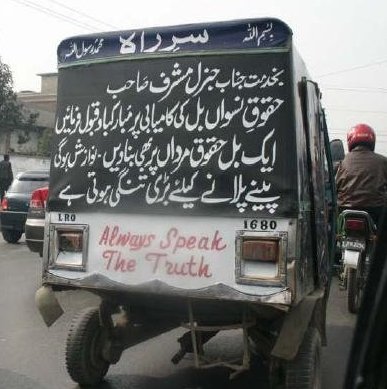 بسم اللہ سرِ راہ محمد رسول اللہ
بخدمت جناب جنرل مشرف صاحب
حقوقِ نسواں بل کی کامیابی پر مبارکباد قبول فرمائیں
ایک بل حقوق مرداں پر بھی بنا دیں ۔ نوازش ہو گی
پینے پلانے کیلئے بڑی تنگی ہوتی ہے
LRO 1680
Always Speak
The Truth